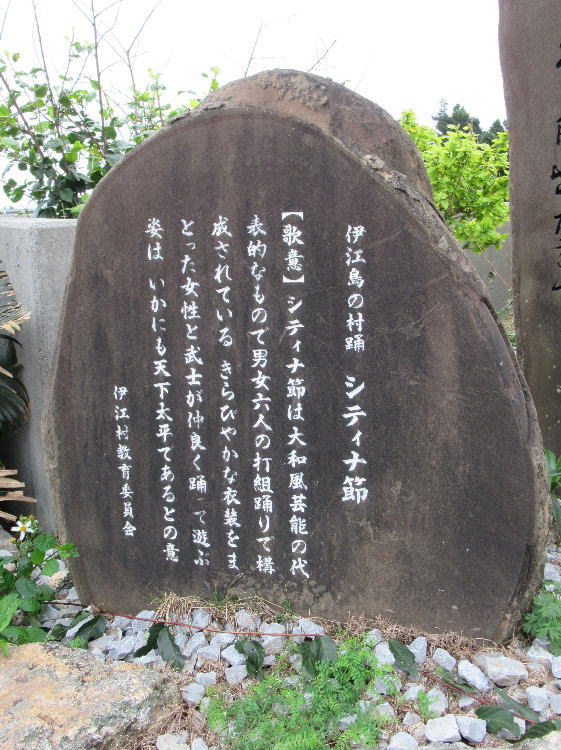 伊江島の村踊 シティナ節
【歌意】シティナ節は大和風芸能の代
表的なもので男女六人の打組踊りで構
成されている きらびやかな衣装をま
とった女性と武士が仲良く踊って遊ぶ
姿は いかにも天下太平であるとの意
伊江村教育委員会